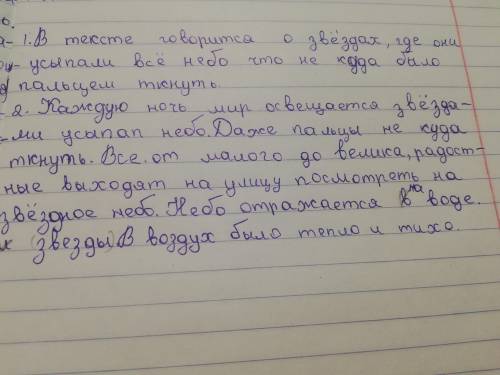 1. В тексте говоритса о звёздах, где они
усыпали всё небо что не куда было
пальцем ткнуть.
2. Каждую ночь мир освещается звёзда-
ми усыпап небо. Даже пальцы не куда
ткнуть. Все от малого до велика, радост-
ные выходят на улицу посмотреть на
звёздное неб. Небо отражается в на воде.
звезды В воздух было тепло и тихо.